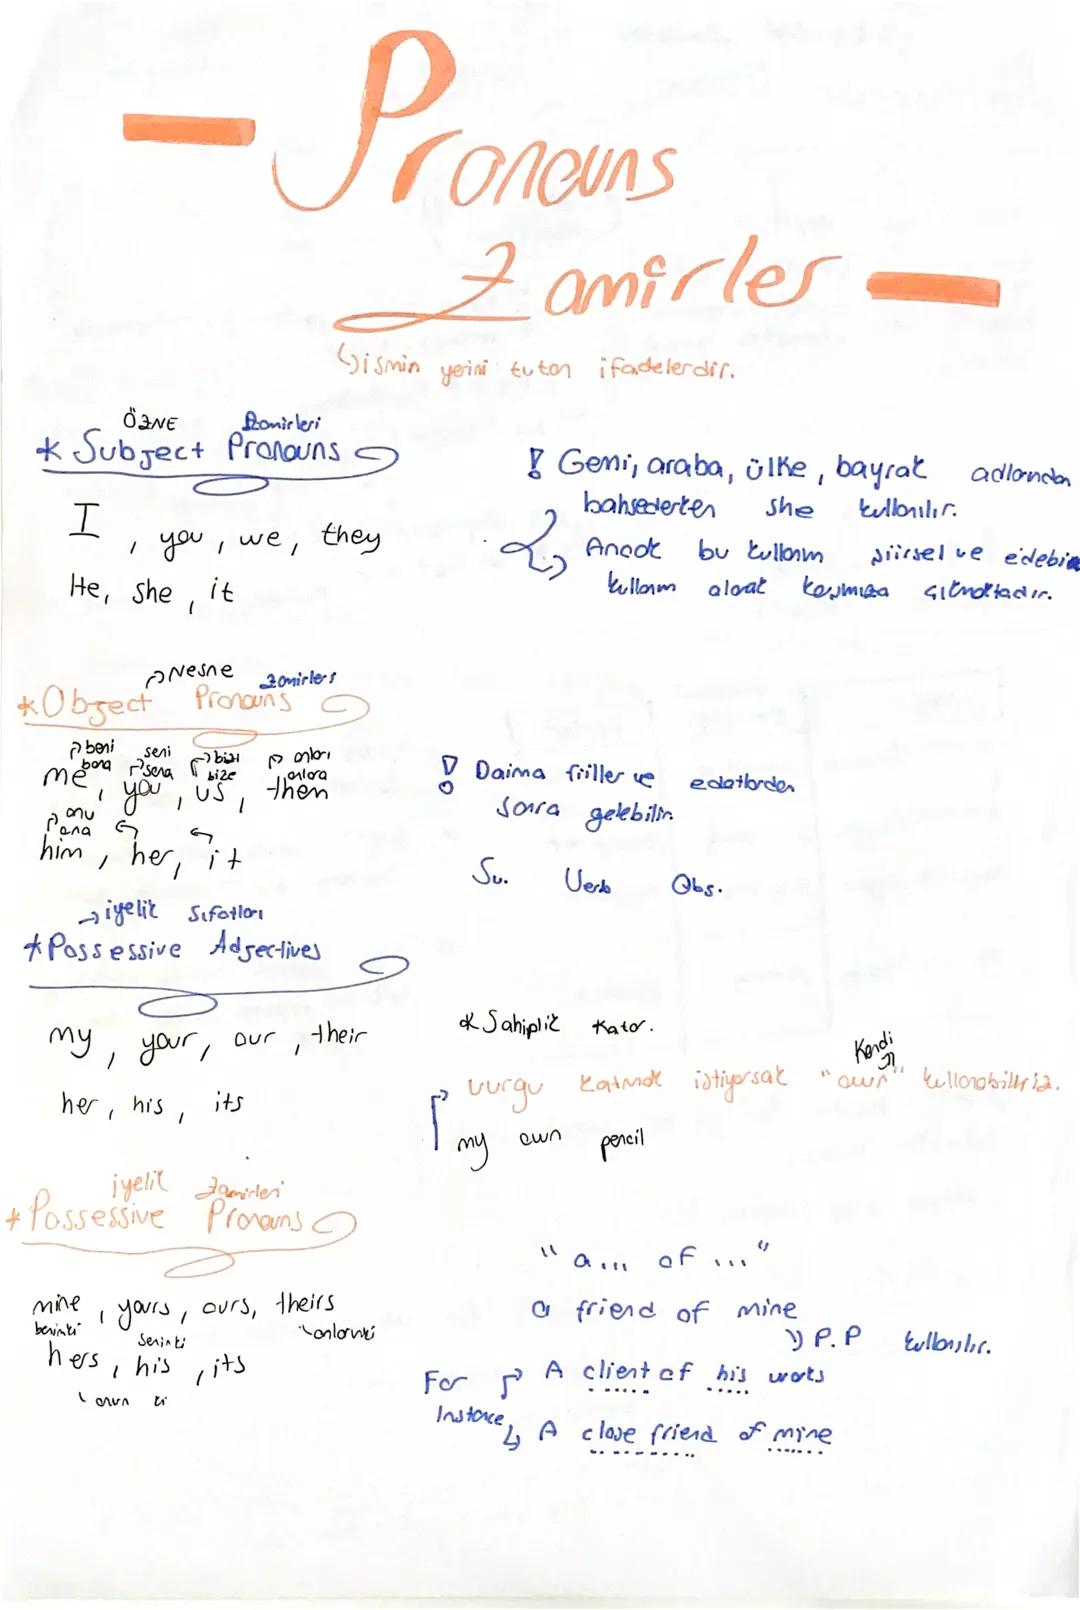 Pronouns
Zamirler
ismin yerini tutan ifadelerdir.
ÖZNE Zamirleri
* Subject Pronouns
I, you, we, they
He, she, it
! Gemi, araba, ülke, bayrak adlarından
bahsederken she kullanılır.
Ancak bu kullanım şiirsel ve edebi
kullanım olarak karşımıza çıkmaktadır.
Nesne Zamirlers
* Object Pronouns
beni seni bizi onları
bana sana bize onlara
me, you, us, then
onu
ona
him, her, it
! Daima fiiller ve edatlardan
sonra gelebilir.
Su. Verb Obs.
iyelik Sıfatları
* Possessive Adjectives
my, your, our, their
her, his, its
* Sahiplik Katar.
Kendi
vurgu katmak istiyorsak "own" kullanabiliriz.
my own pencil
iyelik Zamirleri
* Possessive Pronouns
mine, yours, ours, theirs
benimki seninki onlarınki
hers, his, its
onun ki
"a... of ..."
a friend of mine
P.P kullanılır.
For Instance
A client of his works
A close friend of mine